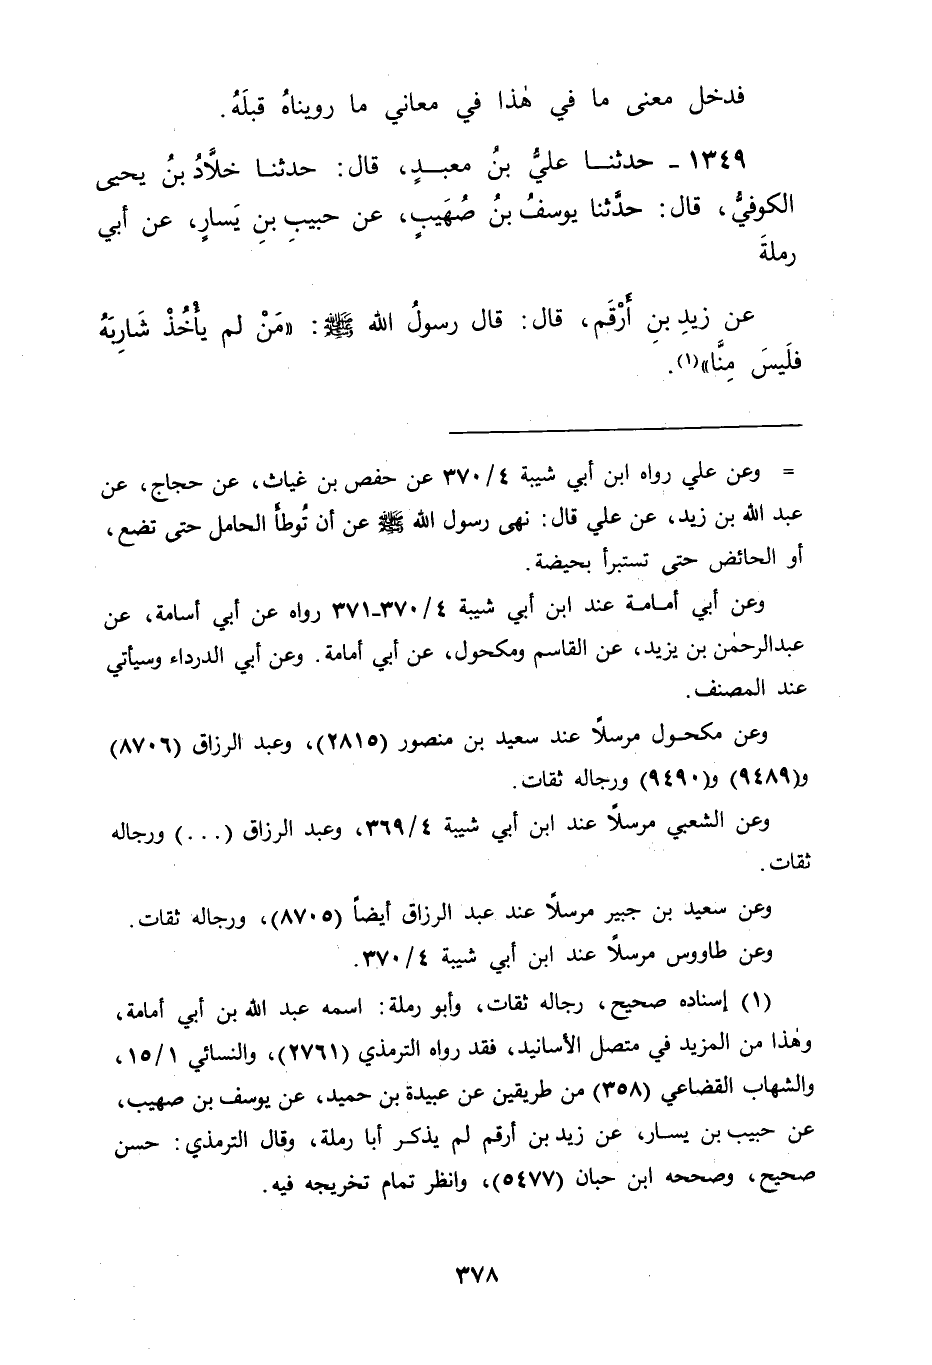 فدخل معنى ما في هٰذا في معاني ما رويناهُ قبلَهُ.
١٣٤٩ - حدثنا عليُّ بنُ معبدٍ، قال: حدثنا خلَّادُ بنُ يحيى
الكوفيُّ، قال: حدَّثنا يوسفُ بنُ صُهَيبٍ، عن حبيبِ بنِ يَسارٍ، عن أبي
رملةَ
عن زيدِ بنِ أَرْقَم، قال: قال رسولُ الله ﷺ: «مَنْ لم يأْخُذْ شَارِبَهُ
فلَيسَ مِنَّا»(١).
= وعن علي رواه ابن أبي شيبة ٣٧٠/٤ عن حفص بن غياث، عن حجاج، عن
عبد الله بن زيد، عن علي قال: نهى رسول الله ﷺ عن أن تُوطأَ الحامل حتى تضع،
أو الحائض حتى تستبرأ بحيضة.
وعن أبي أمامة عند ابن أبي شيبة ٣٧٠/٤-٣٧١ رواه عن أبي أسامة، عن
عبدالرحمٰن بن يزيد، عن القاسم ومكحول، عن أبي أمامة. وعن أبي الدرداء وسيأتي
عند المصنف.
وعن مكحول مرسلاً عند سعيد بن منصور (٢٨١٥)، وعبد الرزاق (٨٧٠٦)
و(٩٤٨٩) و(٩٤٩٠) ورجاله ثقات.
وعن الشعبي مرسلاً عند ابن أبي شيبة ٣٦٩/٤، وعبد الرزاق (...) ورجاله
ثقات.
وعن سعيد بن جبير مرسلاً عند عبد الرزاق أيضاً (٨٧٠٥)، ورجاله ثقات.
وعن طاووس مرسلاً عند ابن أبي شيبة ٣٧٠/٤.
(١) إسناده صحيح، رجاله ثقات، وأبو رملة: اسمه عبد الله بن أبي أمامة،
وهٰذا من المزيد في متصل الأسانيد، فقد رواه الترمذي (٢٧٦١)، والنسائي ١٥/١،
والشهاب القضاعي (٣٥٨) من طريقين عن عبيدة بن حميد، عن يوسف بن صهيب،
عن حبيب بن يسار، عن زيد بن أرقم لم يذكر أبا رملة، وقال الترمذي: حسن
صحيح، وصححه ابن حبان (٥٤٧٧)، وانظر تمام تخريجه فيه.
٣٧٨